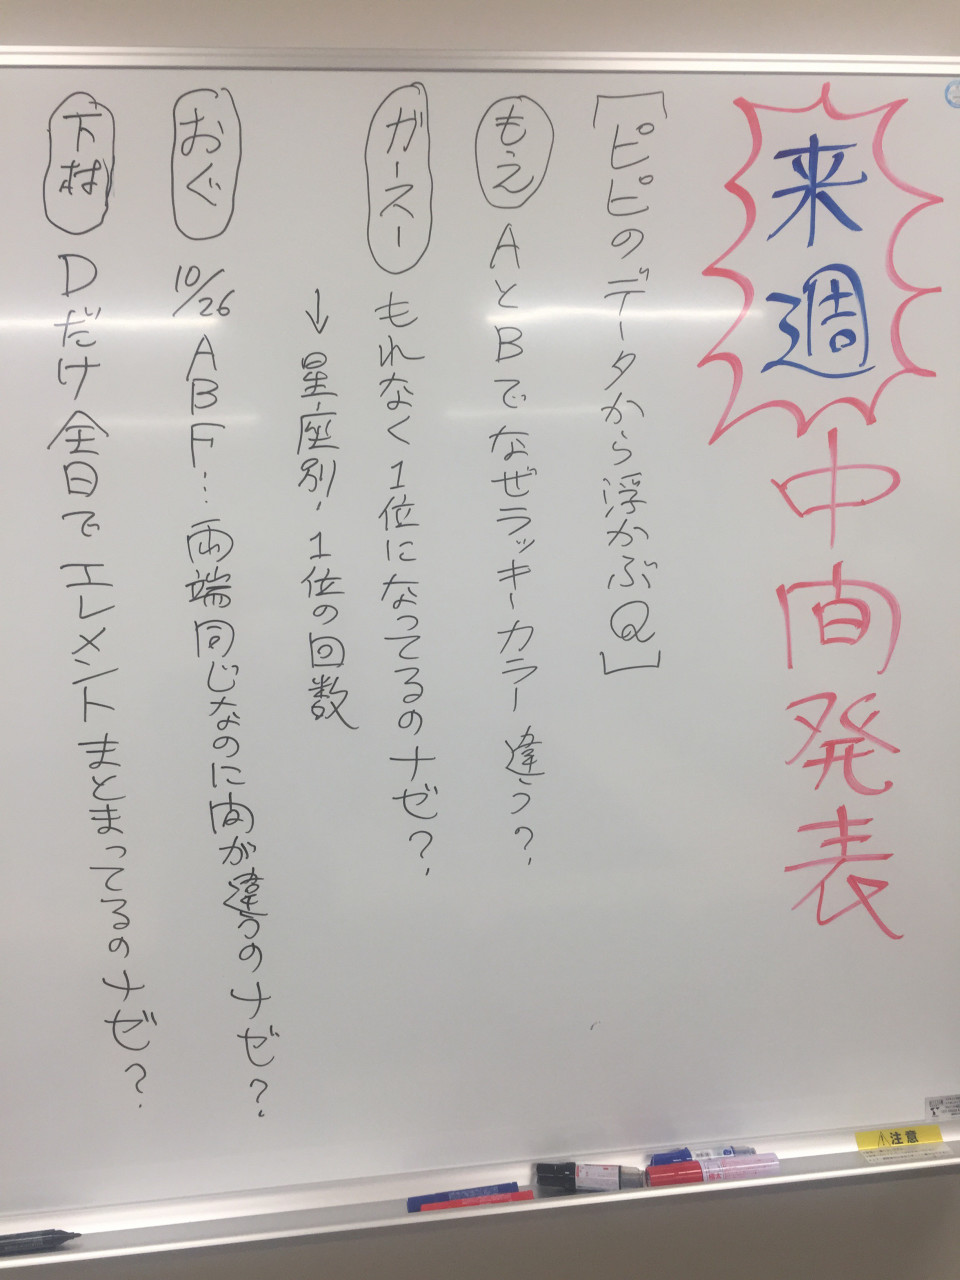 来週中間発表
[ピピのデータから浮かぶQ]
もえ AとBでなぜラッキーカラー違う?
ガースー もれなく1位になってるのナゼ?
→星座別,1位の回数
おぐ 10/26 ABF…両端同じなのに間が違うのナゼ?
下村 Dだけ全日でエレメントまとまってるのナゼ?
注意